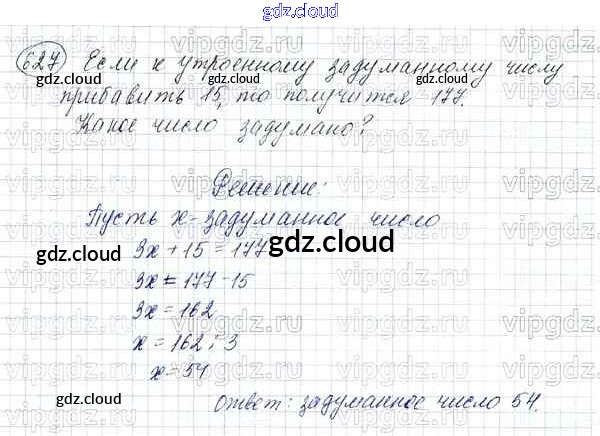 gdz.cloud
627 Если к утроенному задуманному числу
прибавить 15, то получится 177.
Какое число задумано?
Решение:
Пусть x - задуманное число
3x + 15 = 177
3x = 177 - 15
3x = 162
x = 162 : 3
x = 54
Ответ: задуманное число 54.
gdz.cloud
gdz.cloud
gdz.cloud
gdz.cloud
gdz.cloud
gdz.cloud
gdz.cloud
vipgdz.ru